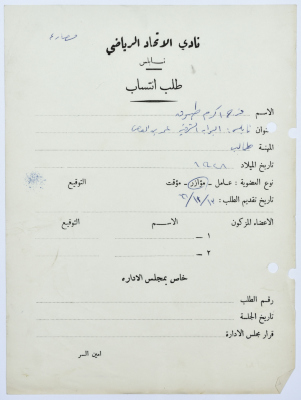 نادي الاتحاد الرياضي
نابلس
طلب انتساب
الاسم
عنوان نابلس
المهنة طالب
تاريخ الميلاد
نوع العضوية : عامل - مؤازر - مؤقت التوقيع
تاريخ تقديم الطلب :
الاعضاء المزكون الاسم التوقيع
١ -
٢ -
خاص بمجلس الاداره
رقم الطلب
تاريخ الجلسة
قرار مجلس الادارة
امين السر